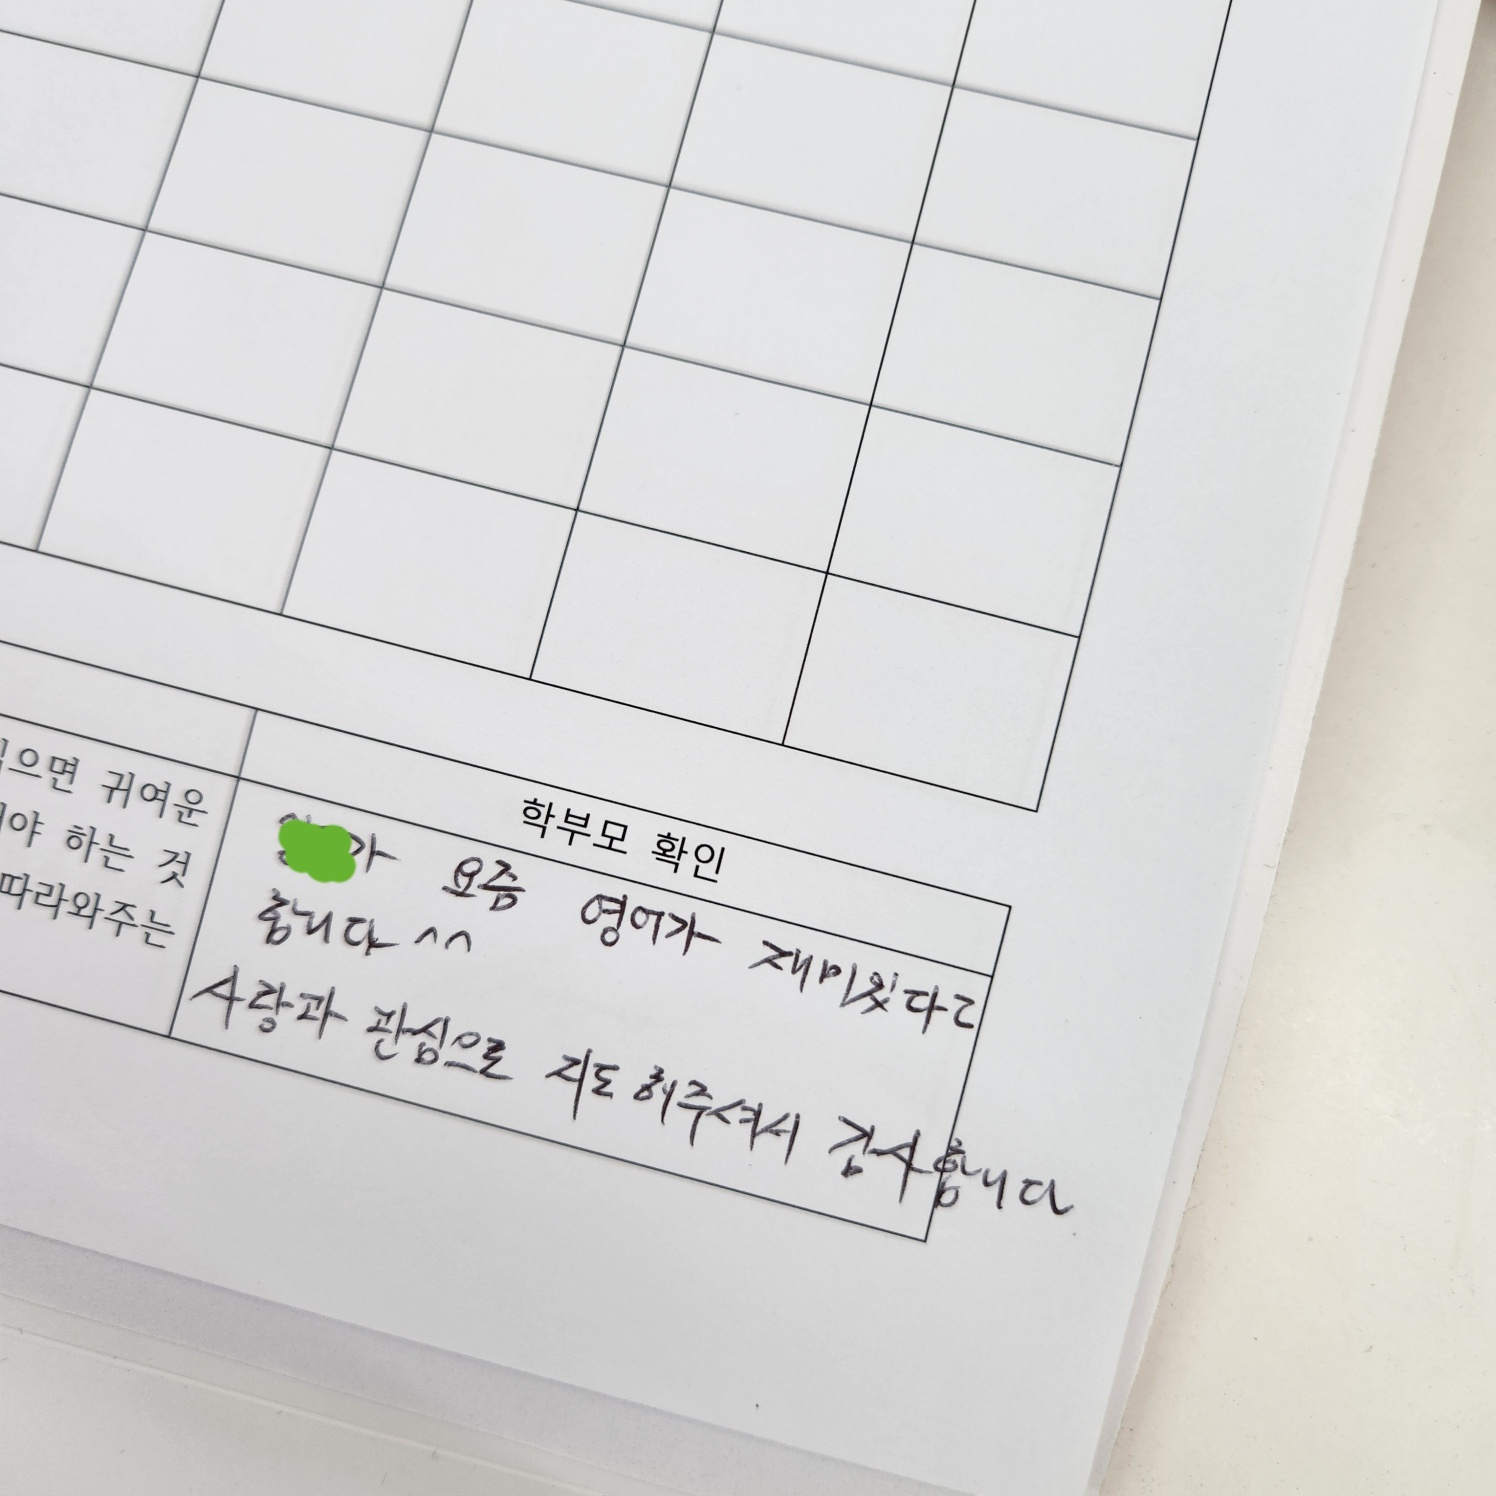 으면 귀여운
야 하는 것
따라와주는
학부모 확인
가 요즘 영어가 재미있다고
합니다 ^^
사랑과 관심으로 지도해주셔서 감사합니다